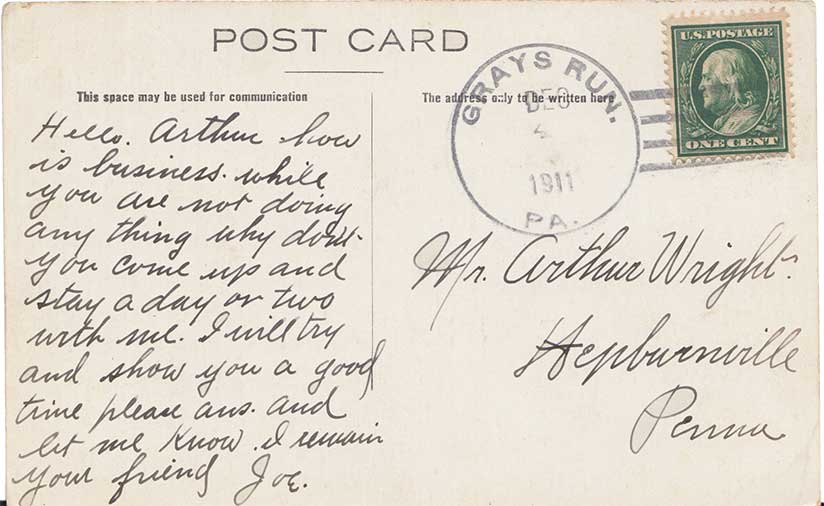 POST CARD
This space may be used for communication
Hello. Arthur how
is business. while
you are not doing
any thing why don't
you come up and
stay a day or two
with me. I will try
and show you a good
time please ans. and
let me know. I remain
your friend Joe.
The address only to be written here
GRAYS RUN.
DEC
1911
PA.
U.S. POSTAGE
ONE CENT
Mr. Arthur Wright.
Hepburnville
Penna